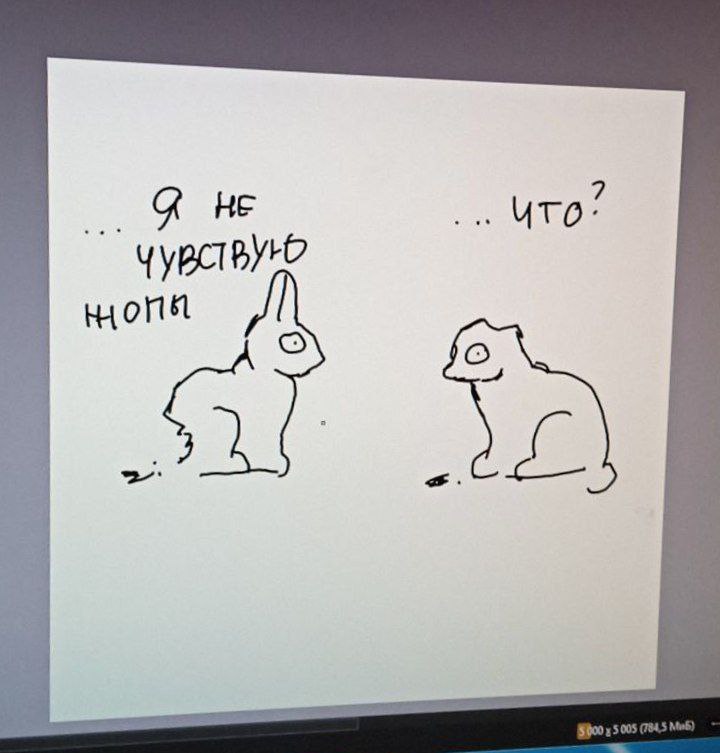 ... Я НЕ
ЧУВСТВУЮ
ЖОПЫ
... ЧТО?
5 000 x 5 005 (784,5 МиБ)